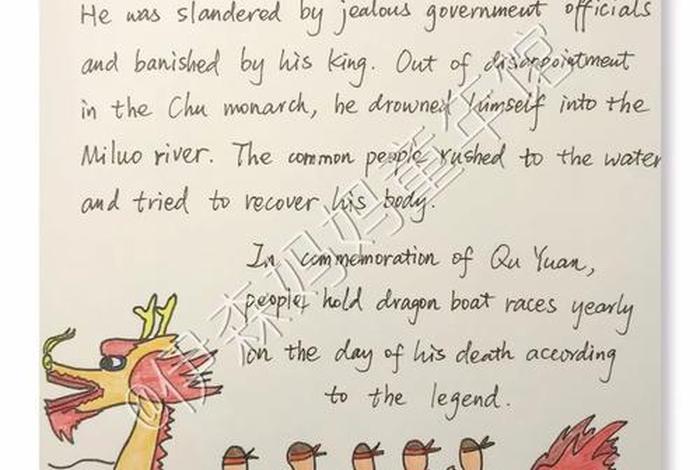 He was slandered by jealous government officials
and banished by his king. Out of disappointment
in the Chu monarch, he drowned himself into the
Miluo river. The common people rushed to the water
and tried to recover his body.
In commemoration of Qu Yuan,
people hold dragon boat races yearly
on the day of his death according
to the legend.
@伊森妈妈童年馆